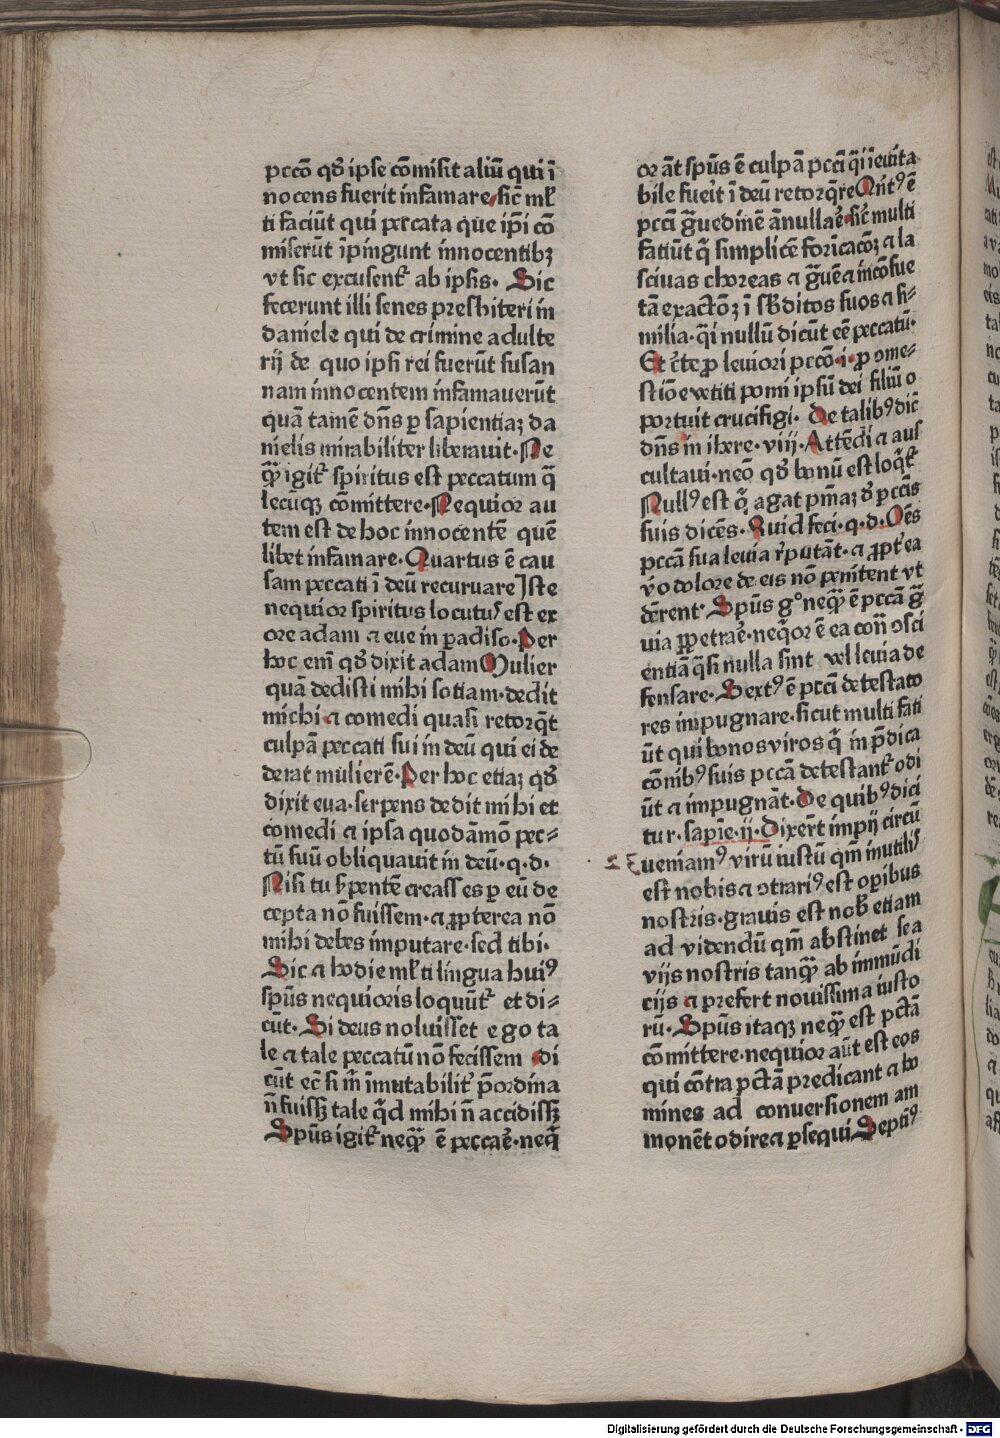 pccō qd̛ ipse cōmisit aliū qui ī
nocens fuerit infamare·sic̄ ml̛
ti faciūt qui peccata que ip̄i cō
miserūt īpingunt innocentibꝫ
vt sic excusent̛ ab ipsis. Sic
fecerunt illi senes presbiteri in
daniele qui de crimine adulte
rij de quo ipsi rei fuerūt susan
nam innocentem infamauerūt
quā tamē dn̄s ꝑ sapientiaꝫ da
nielis mirabiliter liberauit·Ne
qͣꝫ igit̛ spiritus est peccatum q̄
lecūqꝫ cōmittere·Nequior au
tem est de hoc innocentē quē
libet infamare·Quartus ē cau
sam peccati ī deū recuruare Iste
nequior spiritus locutus est ex
ore adam ⁊ eue in ꝑadiso·Per
hoc em̄ qd̛ dixit adam Mulier
quā dedisti mihi sotiam·dedit
michi ⁊ comedi quasi retorq̄t
culpā peccati sui in deū qui ei de
derat mulierē·Per hoc etiaꝫ qd̛
dixit eua·serpens dedit mihi et
comedi ⁊ ipsa quodāmō pec⸗
tū suū obliquauit in deū·q·d·
Nisi tu s̛pentē creasses ꝑ eū de
cepta nō fuissem·⁊ ꝓpterea nō
mihi debes imputare·sed tibi·
Sic ⁊ hodie ml̛ti lingua huiꝰ
sp̄us nequioris loquūt̛ et di⸗
cūt· Si deus noluisset ego ta
le ⁊ tale peccatū nō fecissem di
cūt ec̄ si m̄ īmutabilit̛ p̄ordina
n̄ fuissꝫ tale qͥd mihi n̄ accidissꝫ
Sp̄us igit̛ neqͣꝫ ē peccar̄e·neqͥ
or āt sp̄us ē culpā pcc̄i qͣi īeuita
bile fuer̄it ī deū retorq̄re Qn̄tꝰ ē
pcc̄i gͣuedinē ānullar̄e·sic̄ multi
fatiūt qͥ simplicē fornicacōꝫ ⁊ la
sciuas choreas ⁊ gͣuē ⁊ incōsue
tā exactōꝫ ī sb̛ditos suos ⁊ si⸗
milia·qͣi nullū dicūt eē peccatū·
Et c̄te ꝓ leuiori pccō·i·ꝓ ꝯme⸗
stiōe vetiti pomi ipsū dei filiū o
portuit crucifigi· De talibꝰ dic̄
dn̄s in iere·viij·Attēdi ⁊ aus
cultaui·neō qd̛ bonū est loqͥt̛
Nullꝰ est qͥ agat pn̄iaꝫ d̛ pcc̄is
suis dicēs· Quid feci·q·d·Oēs
pccā sua leuia r̄putāt·⁊ ꝓpt̛ea
v̄o dolore de eis nō penitent vt
dēr̄ent· Sp̄us gͦ neqͣꝫ ē pccā gͣ
uia ꝑpetrar̄e·neqͥor ē ea con̄ ꝯsci
entiā qͣsi nulla sint vel leuia de
fensare· Sextꝰ ē pcc̄i detestato
res impugnare·sicut multi fati
ūt qui bonos viros qͥ in p̄dica
cōnibꝰ suis pccā detestant̛ odi
ūt ⁊ impugnāt·De quibꝰ dici
tur·sapie·ij·Dixer̄t impij circū
ueniamꝰ virū iustū qm̄ inutilis
est nobis ⁊ ꝯtrariꝰ est oꝑibus
nostris·grauis est nob̛ etiam
ad videndū qm̄ abstinet se a
vijs nostris tanqͣꝫ ab immūdi
cijs ⁊ prefert nouissima iusto
rū· Sp̄us itaqꝫ neqͣꝫ est pctā
cōmittere·nequior aūt est eos
qui cōtra pctā predicant ⁊ ho
mines ad conuersionem am
monēt odire ⁊ ꝑsequi Septiꝰ
Digitalisierung gefördert durch die Deutsche Forschungsgemeinschaft · DFG